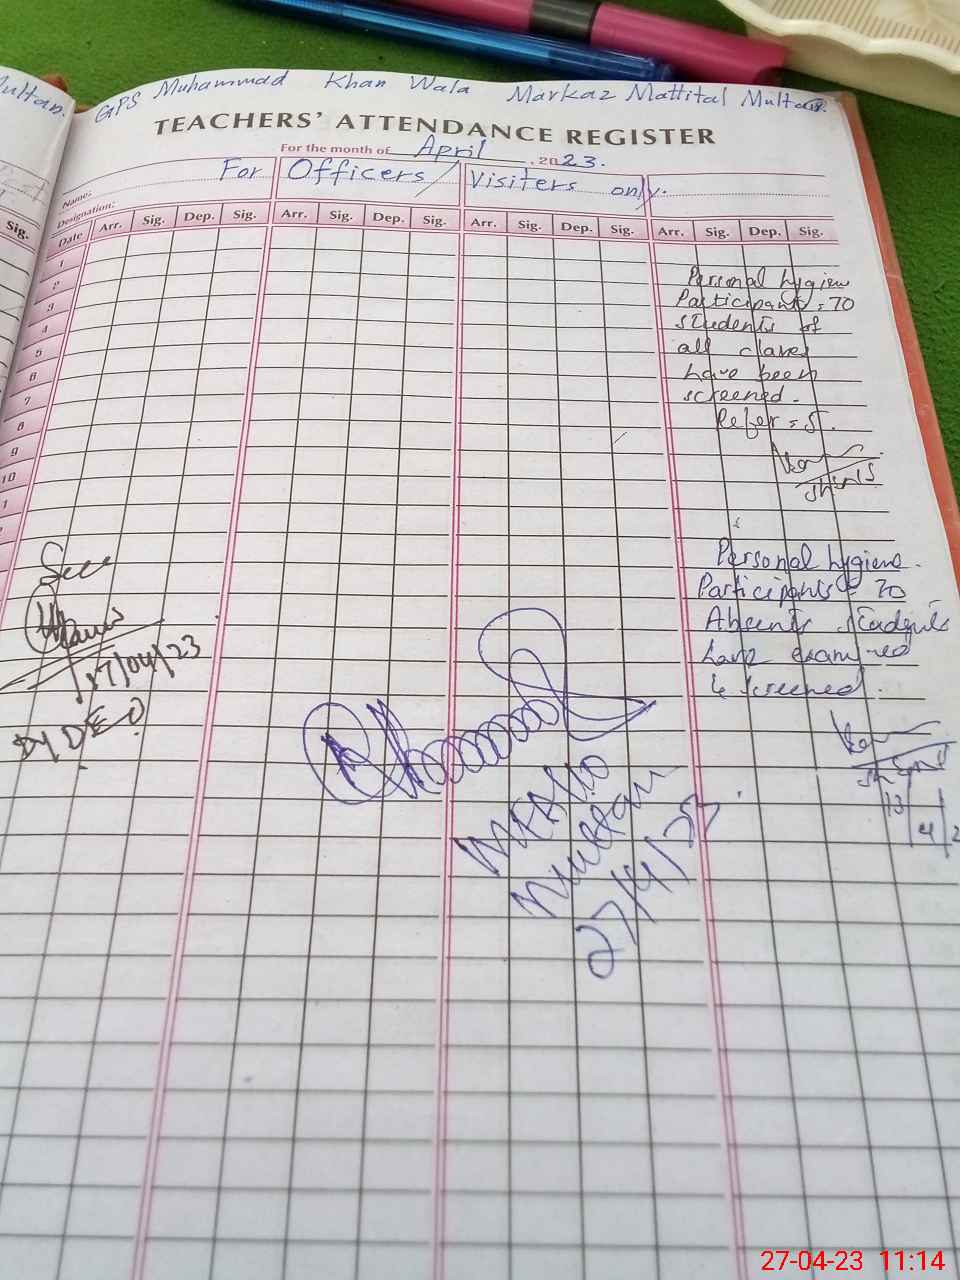 Multan.
GPS Muhammad Khan Wala Markaz Mattital Multan.
TEACHERS' ATTENDANCE REGISTER
For the month of April, 2023.
Name: For Officers/ Visiters only.
Designation:
Sig.
Date Arr. Sig. Dep. Sig. Arr. Sig. Dep. Sig. Arr. Sig. Dep. Sig. Arr. Sig. Dep. Sig.
1
2
3
4
5
6
7
8
9
10
Personal hygien
Participants = 70
students of
all clases
have been
screened.
Refer = 5.
SH&NS
Personal hygiene.
Participants = 70
Absents students
have examined
& screened.
SH&NS
13
4
2
Seen
17/04/23
Dy DEO
Multan
27/4/23
27-04-23 11:14